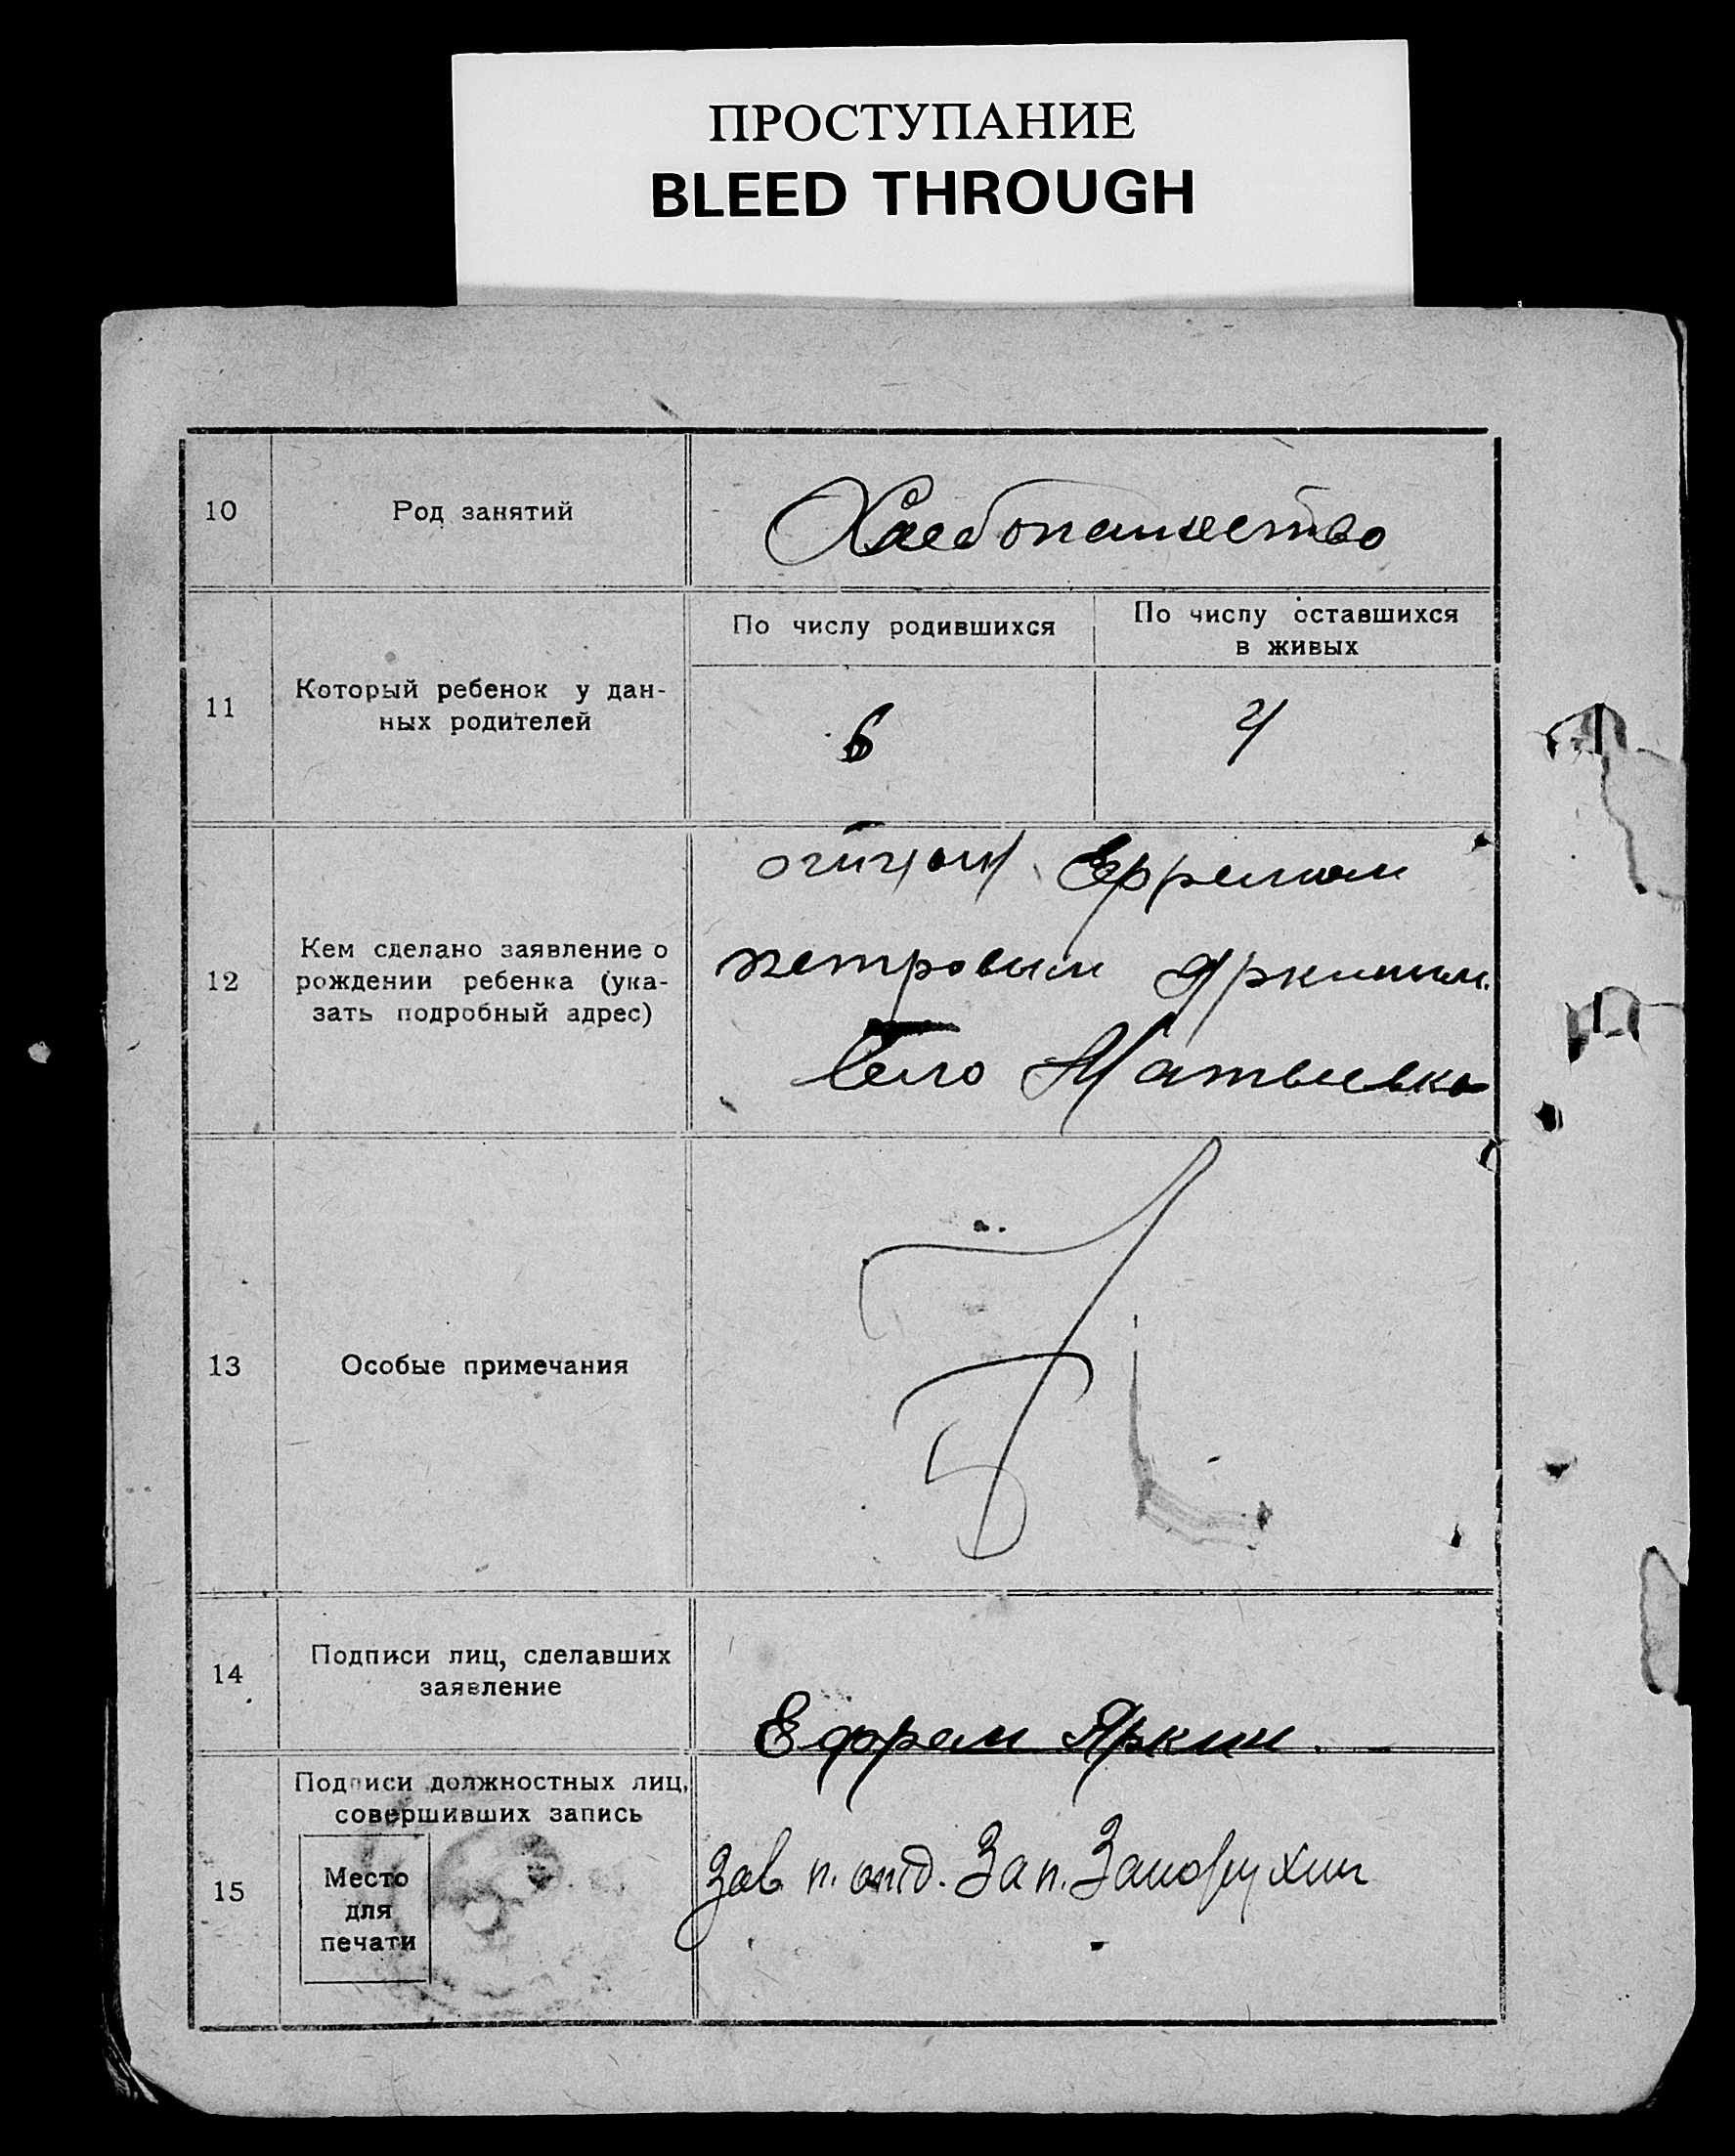 ПРОСТУПАНИЕ
BLEED THROUGH
10
Род занятий
Хлебопашество
11
Который ребенок у дан-
ных родителей
По числу родившихся
По числу оставшихся
в живых
6
4
12
Кем сделано заявление о
рождении ребенка (ука-
зать подробный адрес)
отцом Ефремом
петровым Яркиным.
Село Матвеевка
13
Особые примечания
14
Подписи лиц, сделавших
заявление
Ефрем Яркин
15
Подписи должностных лиц,
совершивших запись
Место
для
печати
Зав п. отд. Зап.